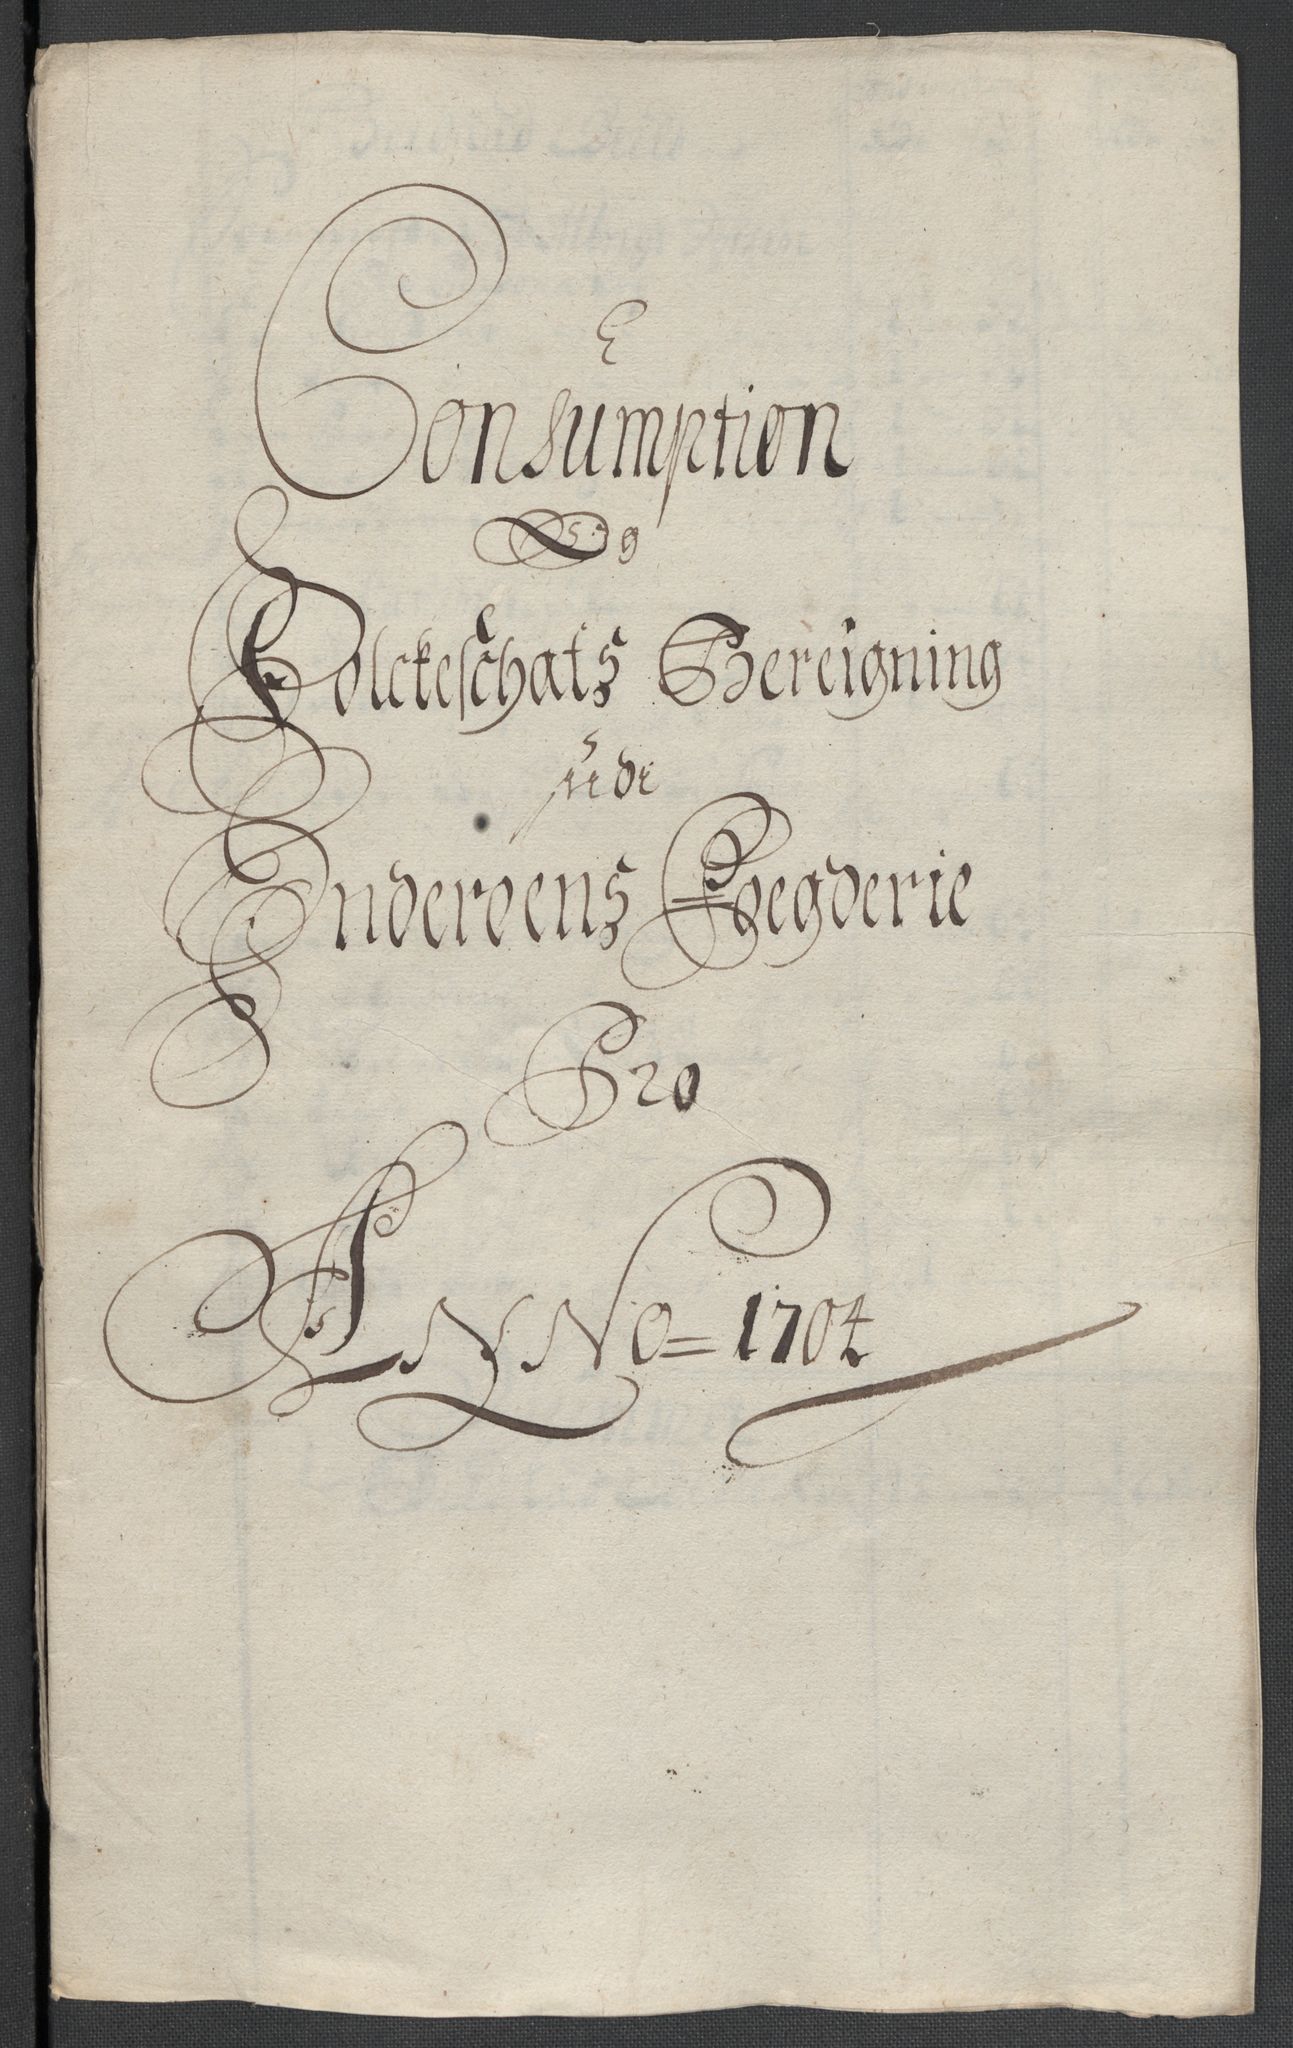 Consumption
Og
Folckeschats Bereigning
ude
Inderøens Fogderie
Pro
ANNO = 1704